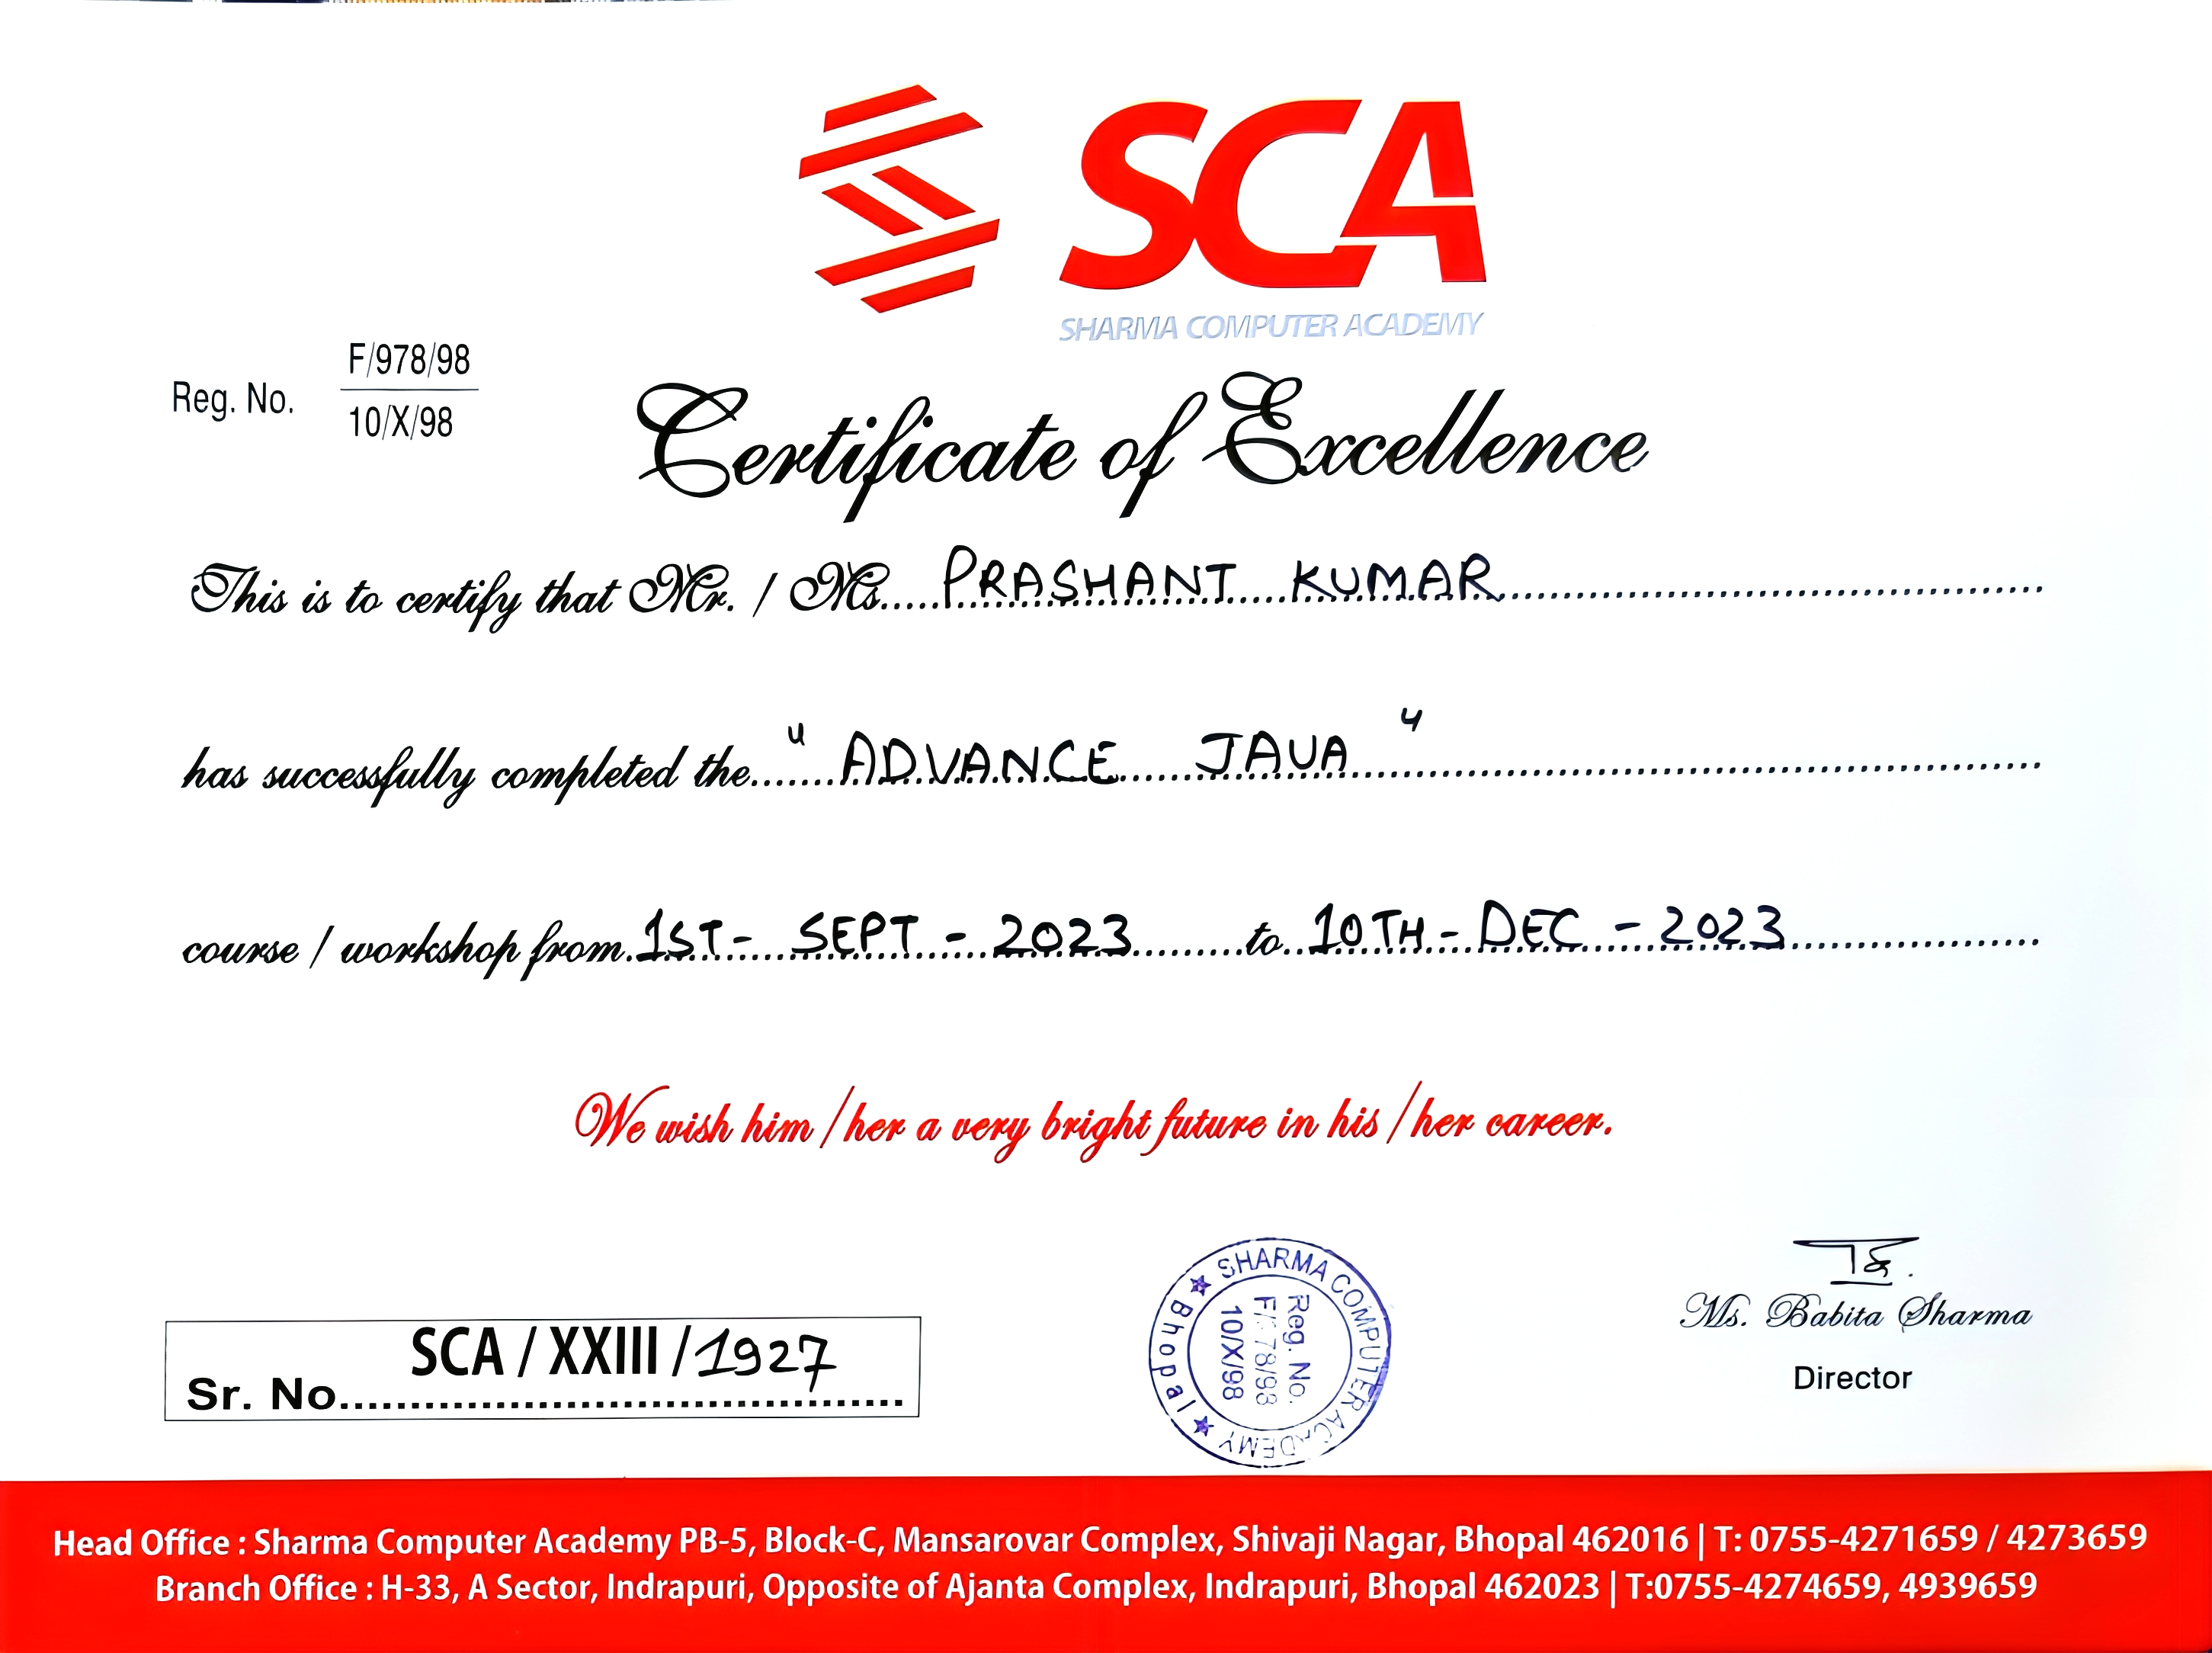 SCA
SHARMA COMPUTER ACADEMY
Reg. No. F/978/98
10/X/98
Certificate of Excellence
This is to certify that Mr. / Ms..... PRASHANT KUMAR
has successfully completed the.... " ADVANCE JAVA "
course / workshop from. 1ST - SEPT - 2023 to 10TH - DEC - 2023
We wish him / her a very bright future in his / her career.
SCA / XXIII / 1927
Sr. No.
SHARMA COMPUTER ACADEMY
★ Bhopal ★
Reg. No.
F/978/98
10/X/98
Ms. Babita Sharma
Director
Head Office : Sharma Computer Academy PB-5, Block-C, Mansarovar Complex, Shivaji Nagar, Bhopal 462016 | T: 0755-4271659 / 4273659
Branch Office : H-33, A Sector, Indrapuri, Opposite of Ajanta Complex, Indrapuri, Bhopal 462023 | T:0755-4274659, 4939659